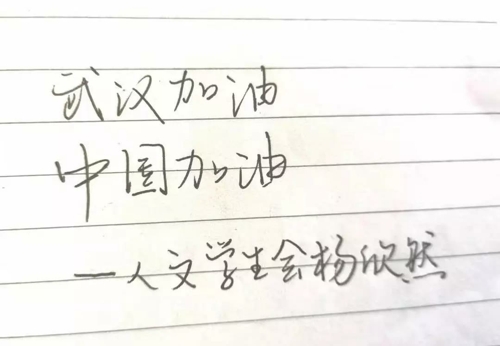 武汉加油
中国加油
—人文学生会杨欣然